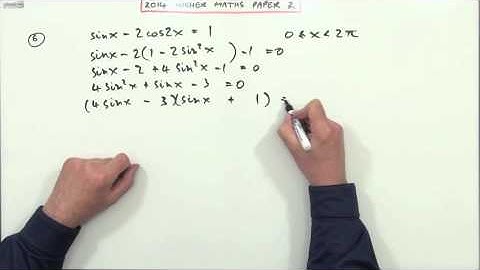 2014 HIGHER MATHS PAPER 2
6 sinx - 2cos2x = 1 0 ≤ x < 2π
sinx - 2(1 - 2sin²x) - 1 = 0
sinx - 2 + 4sin²x - 1 = 0
4sin²x + sinx - 3 = 0
(4sinx - 3)(sinx + 1) =